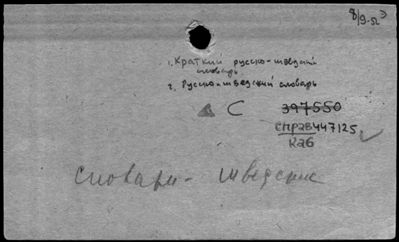 8/9-52
1. Краткий русско-шведский
словарь
2. Русско-шведский словарь
С 397550
СПР2В447125
К26
Словари - шведские